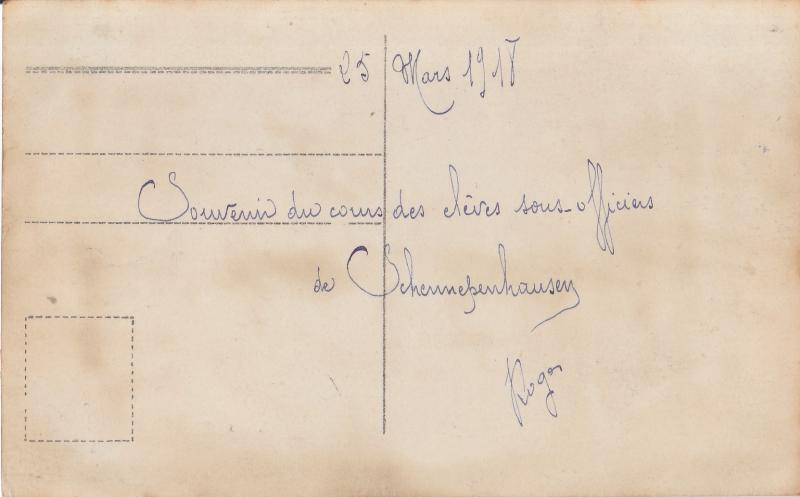 25 Mars 1918
Souvenir du cours des elèves sous-officiers
de Schennepenhausen
Roger